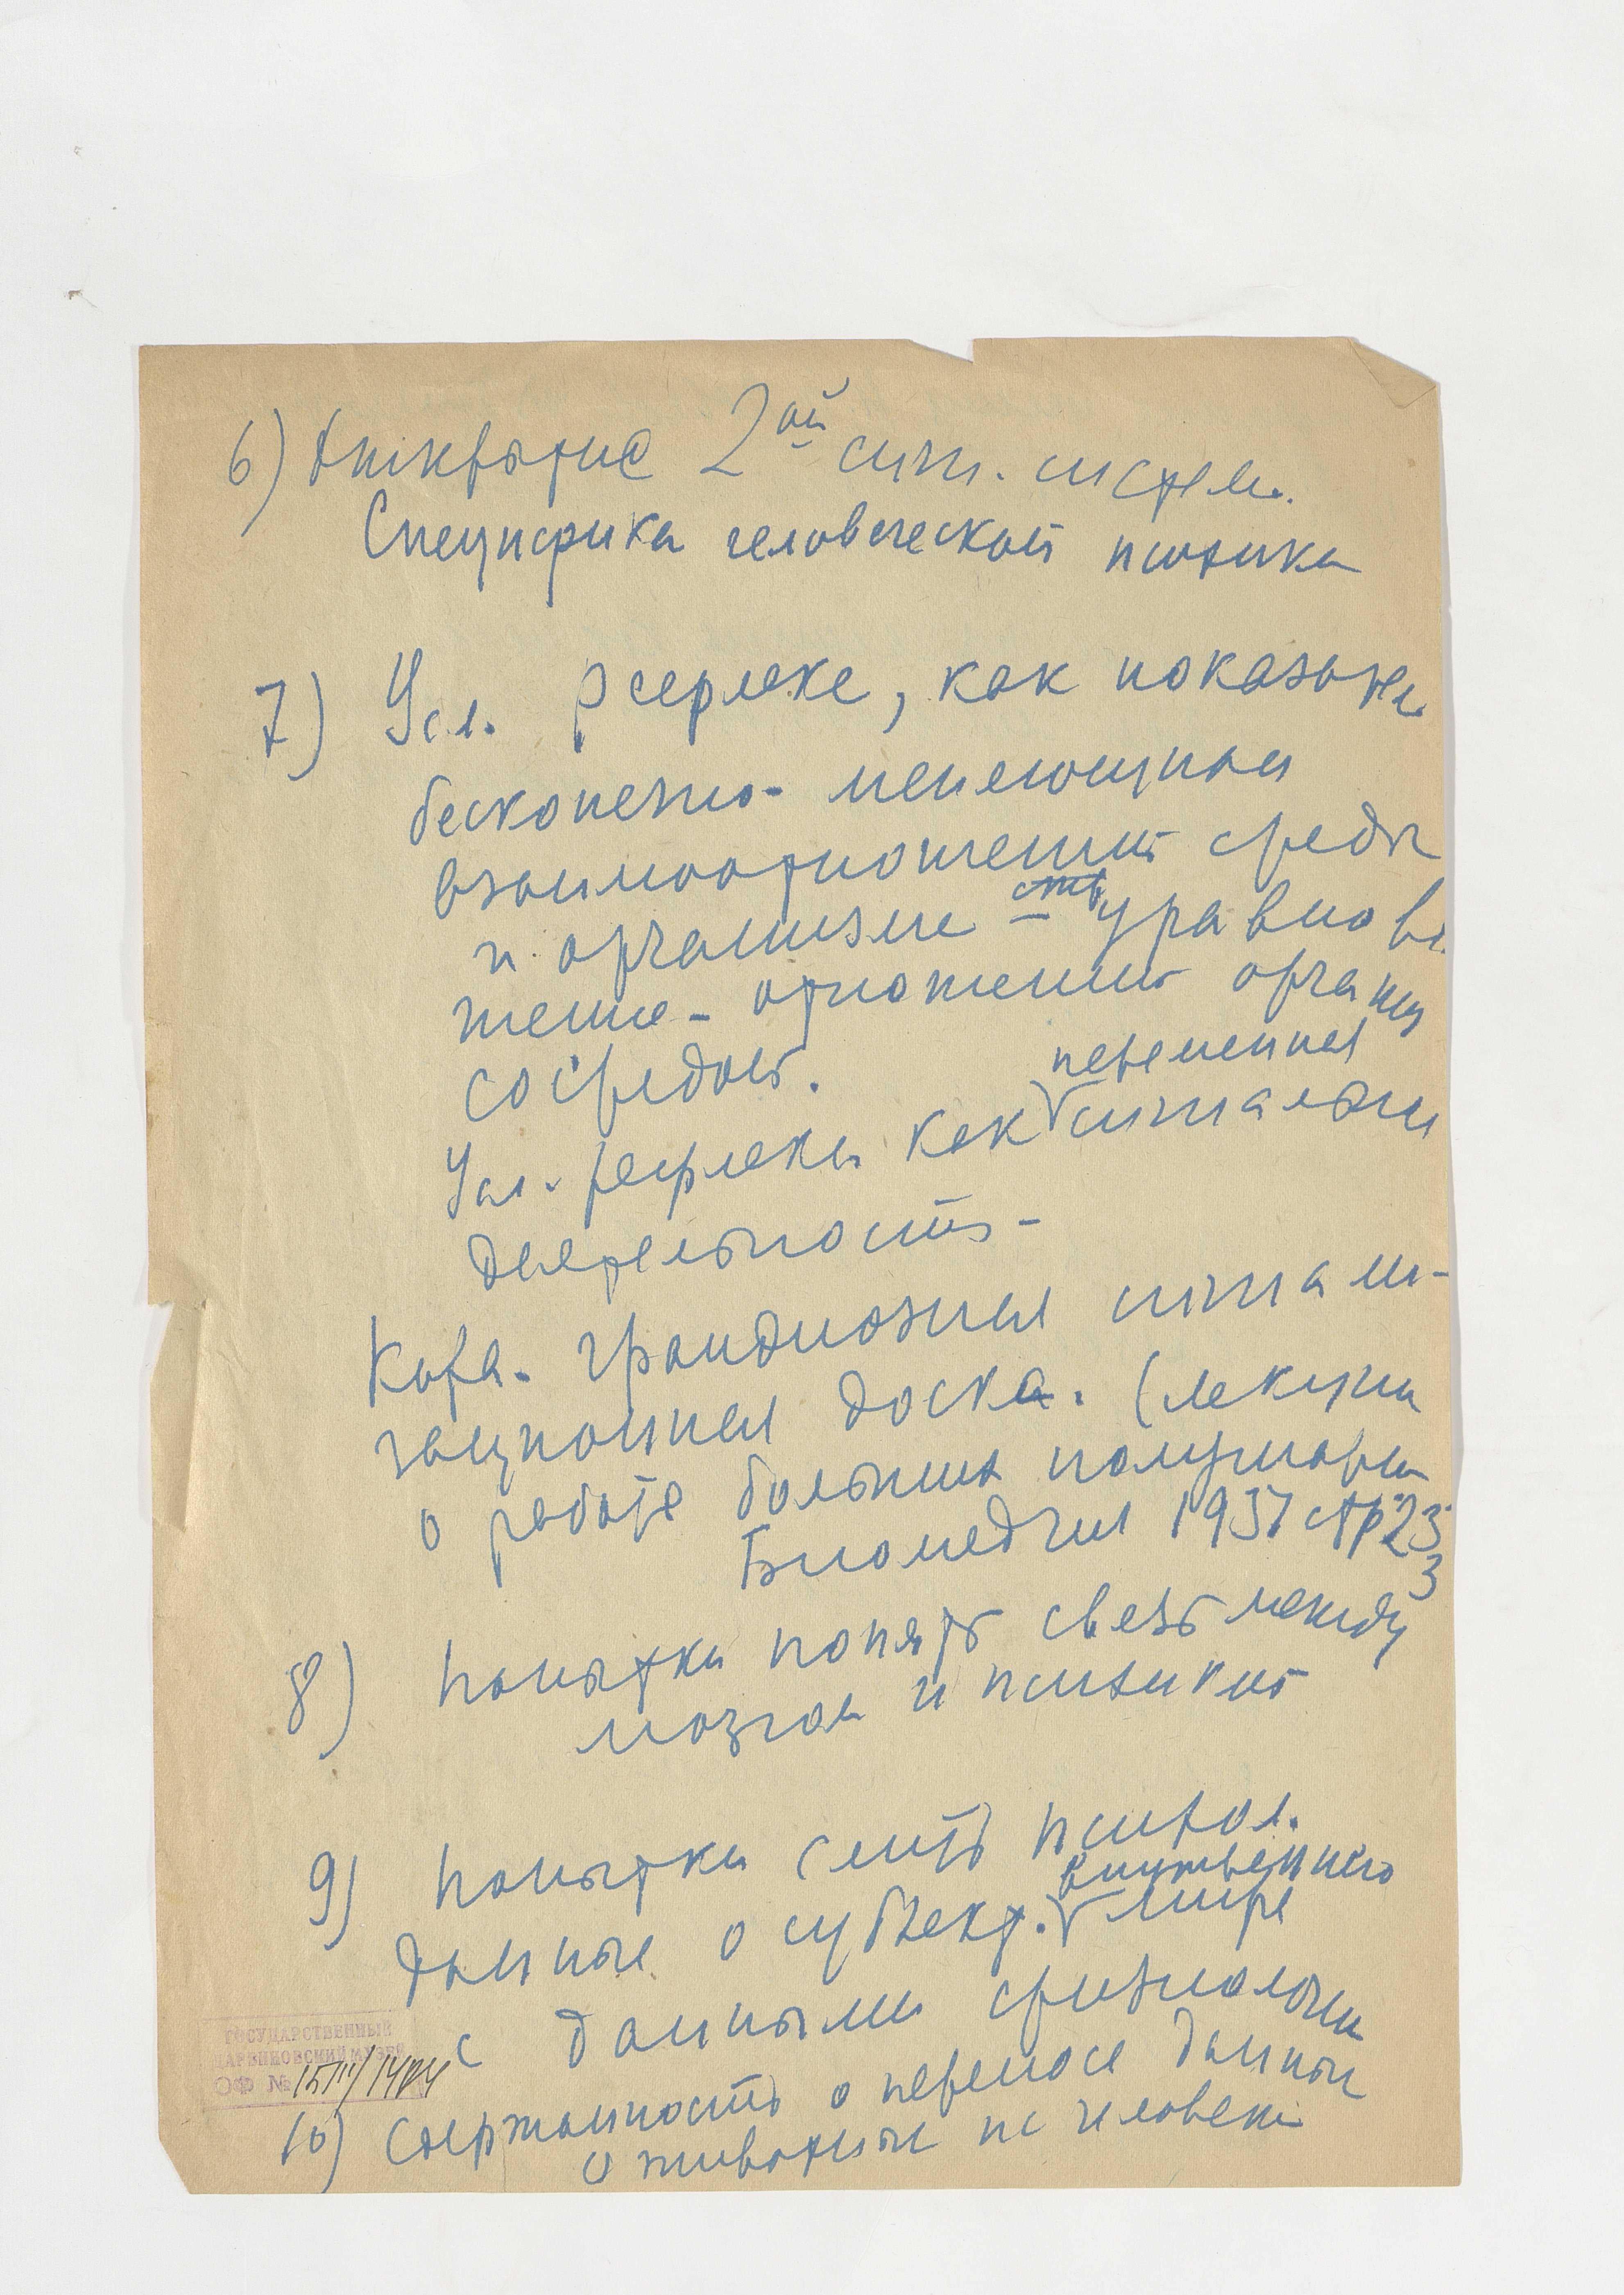 6) Открытие 2ой сигн. систем.
Специфика человеческой психики
7) Усл. рефлекс, как показат.
бесконечно- меняющихся
взаимоотношений среды
и организма — уравнове
шение - отношений организ
со средой.
переменная
Усл. рефлексы как сигнальн
деятельность -
Кора. грандиозная сигнали-
зационная доска. (лекции
о работе больших полушари
Биомедгиз 1937 стр 23
3
8) Попытки понять связь между
мозгом и психикой
9) Попытки слить психол.
внутреннего
данные о субъект. мире
с данными физиологии
ГОСУДАРСТВЕННЫЙ
ДАРВИНОВСКИЙ МУЗЕЙ
ОФ №
10) Сдержанность о переносе данных
о животных на человека